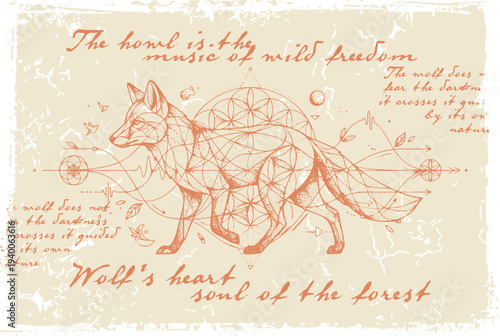 The howl is the
music of wild freedom
The wolf does n
fear the darkness
it crosses it guid
by its on
nature
e wolf does not
the darkness.
crosses it guided
its own
ture
Wolf's heart
soul of the forest
Adobe Stock | #1940063616